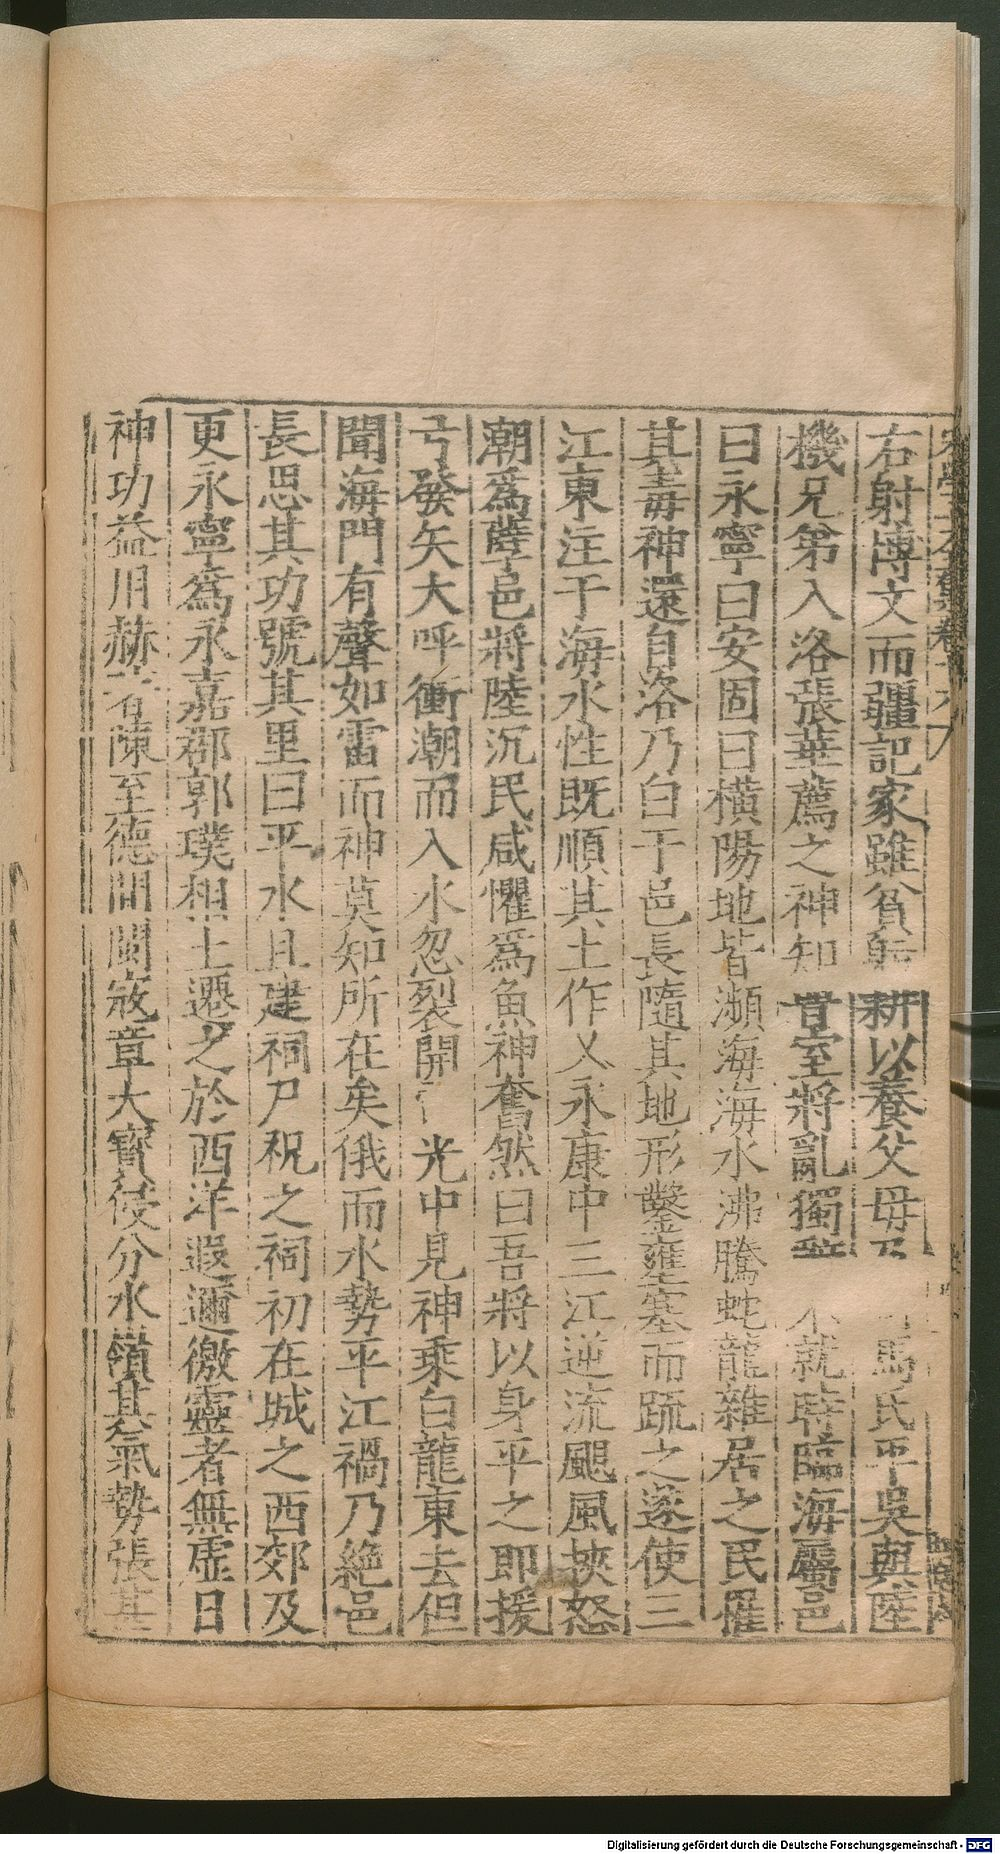 右射博文而疆記家雖貧躬耕以養父母及馬氏平吳與陸
機兄弟入洛張華薦之神知晉室將亂獨辭不就時臨海屬邑
曰永寧曰安固曰橫陽地皆瀕海海水沸騰蛇龍雜居之民罹
其毒神還自洛乃白于邑長隨其地形鑿壅塞而疏之遂使三
江東注于海水性既順其土作乂永康中三江逆流颶風挾怒
潮爲孽邑將陸沉民咸懼爲魚神奮然曰吾將以身平之即援
弓發矢大呼衝潮而入水忽裂開 光中見神乘白龍東去但
聞海門有聲如雷而神莫知所在矣俄而水勢平江禍乃絶邑
長思其功號其里曰平水且建祠尸祝之祠初在城之西郊及
更永寧爲永嘉郡郭璞相土遷之於西洋遐邇徼靈者無虛日
神功益用赫著陳至德間閩寇章大寶侵分水嶺其氣勢張甚
Digitalisierung gefördert durch die Deutsche Forschungsgemeinschaft - DFG